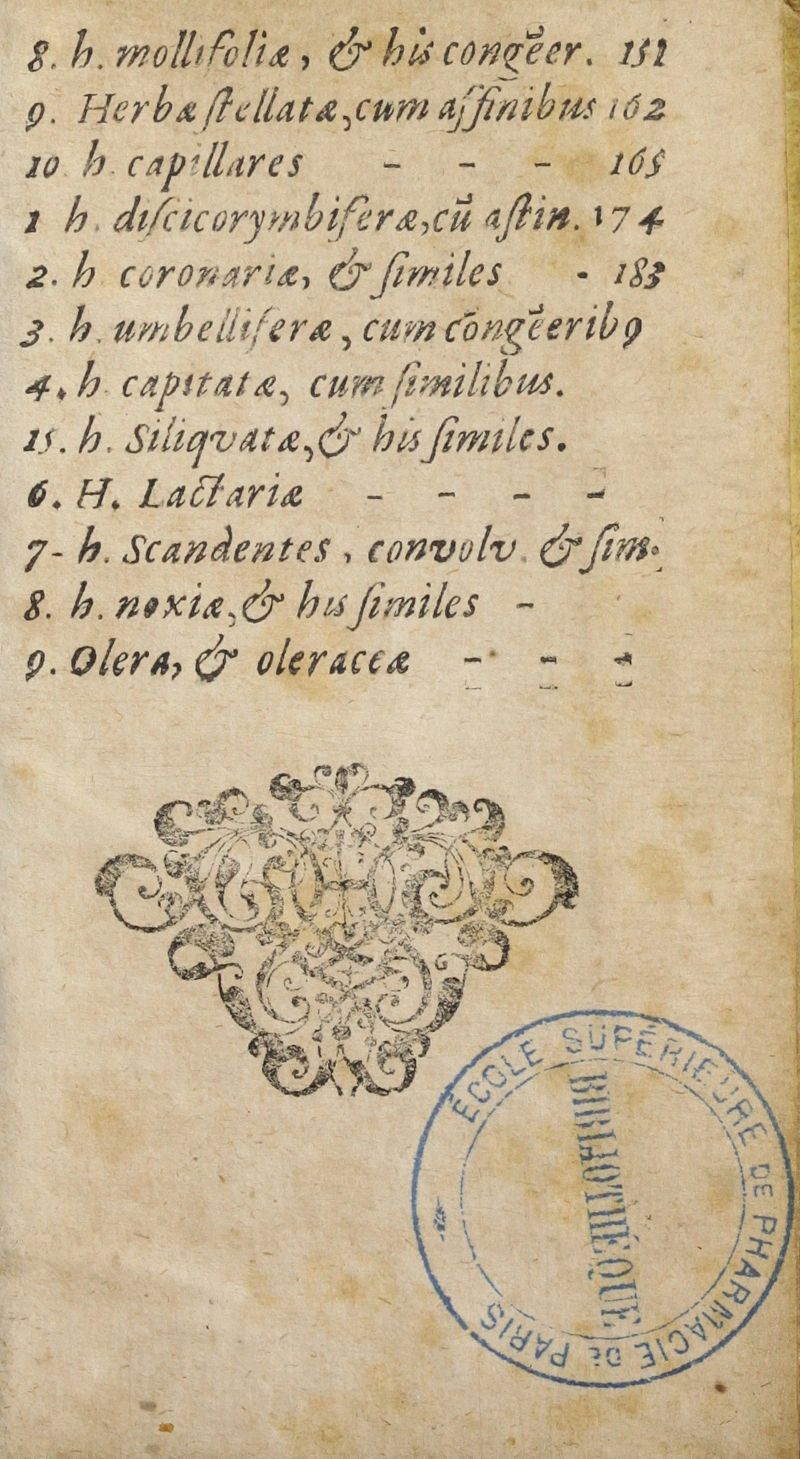 8. h. mollifoliæ, & his congẽer. 151
9. Herbæ ſtellatæ,cum aſſinibus 162
10 h. capillares - - - 165
1 h. diſcicorymbiferæ,cũ aſtin. 174
2. h coronariæ, & ſimiles - 183
3. h. umbelliferæ, cum cõngẽerib9
4. h capitatæ, cum ſimilibus.
15. h. Siliqvatæ,& his ſimiles.
6. H. Lactariæ - - - -
7- h. Scandentes, convolv. & ſim.
8. h. noxiæ,& his ſimiles -
9. Olera, & oleraceæ - - -
ÉCOLE SUPÉRIEURE DE PHARMACIE DE PARIS
BIBLIOTHÈQUE.